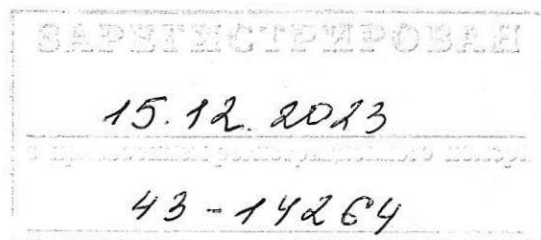 ЗАРЕГИСТРИРОВАН
15.12.2023
43-14264